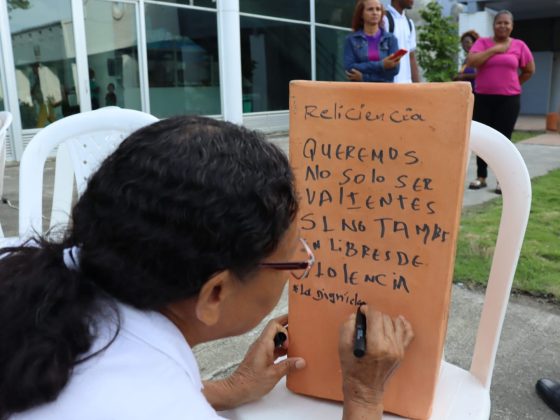 Reliciencia
QUEREMOS
NO SOLO SER
VALIENTES
SINO TAMBI
N LIBRES DE
VIOLENCIA
#La Dignida